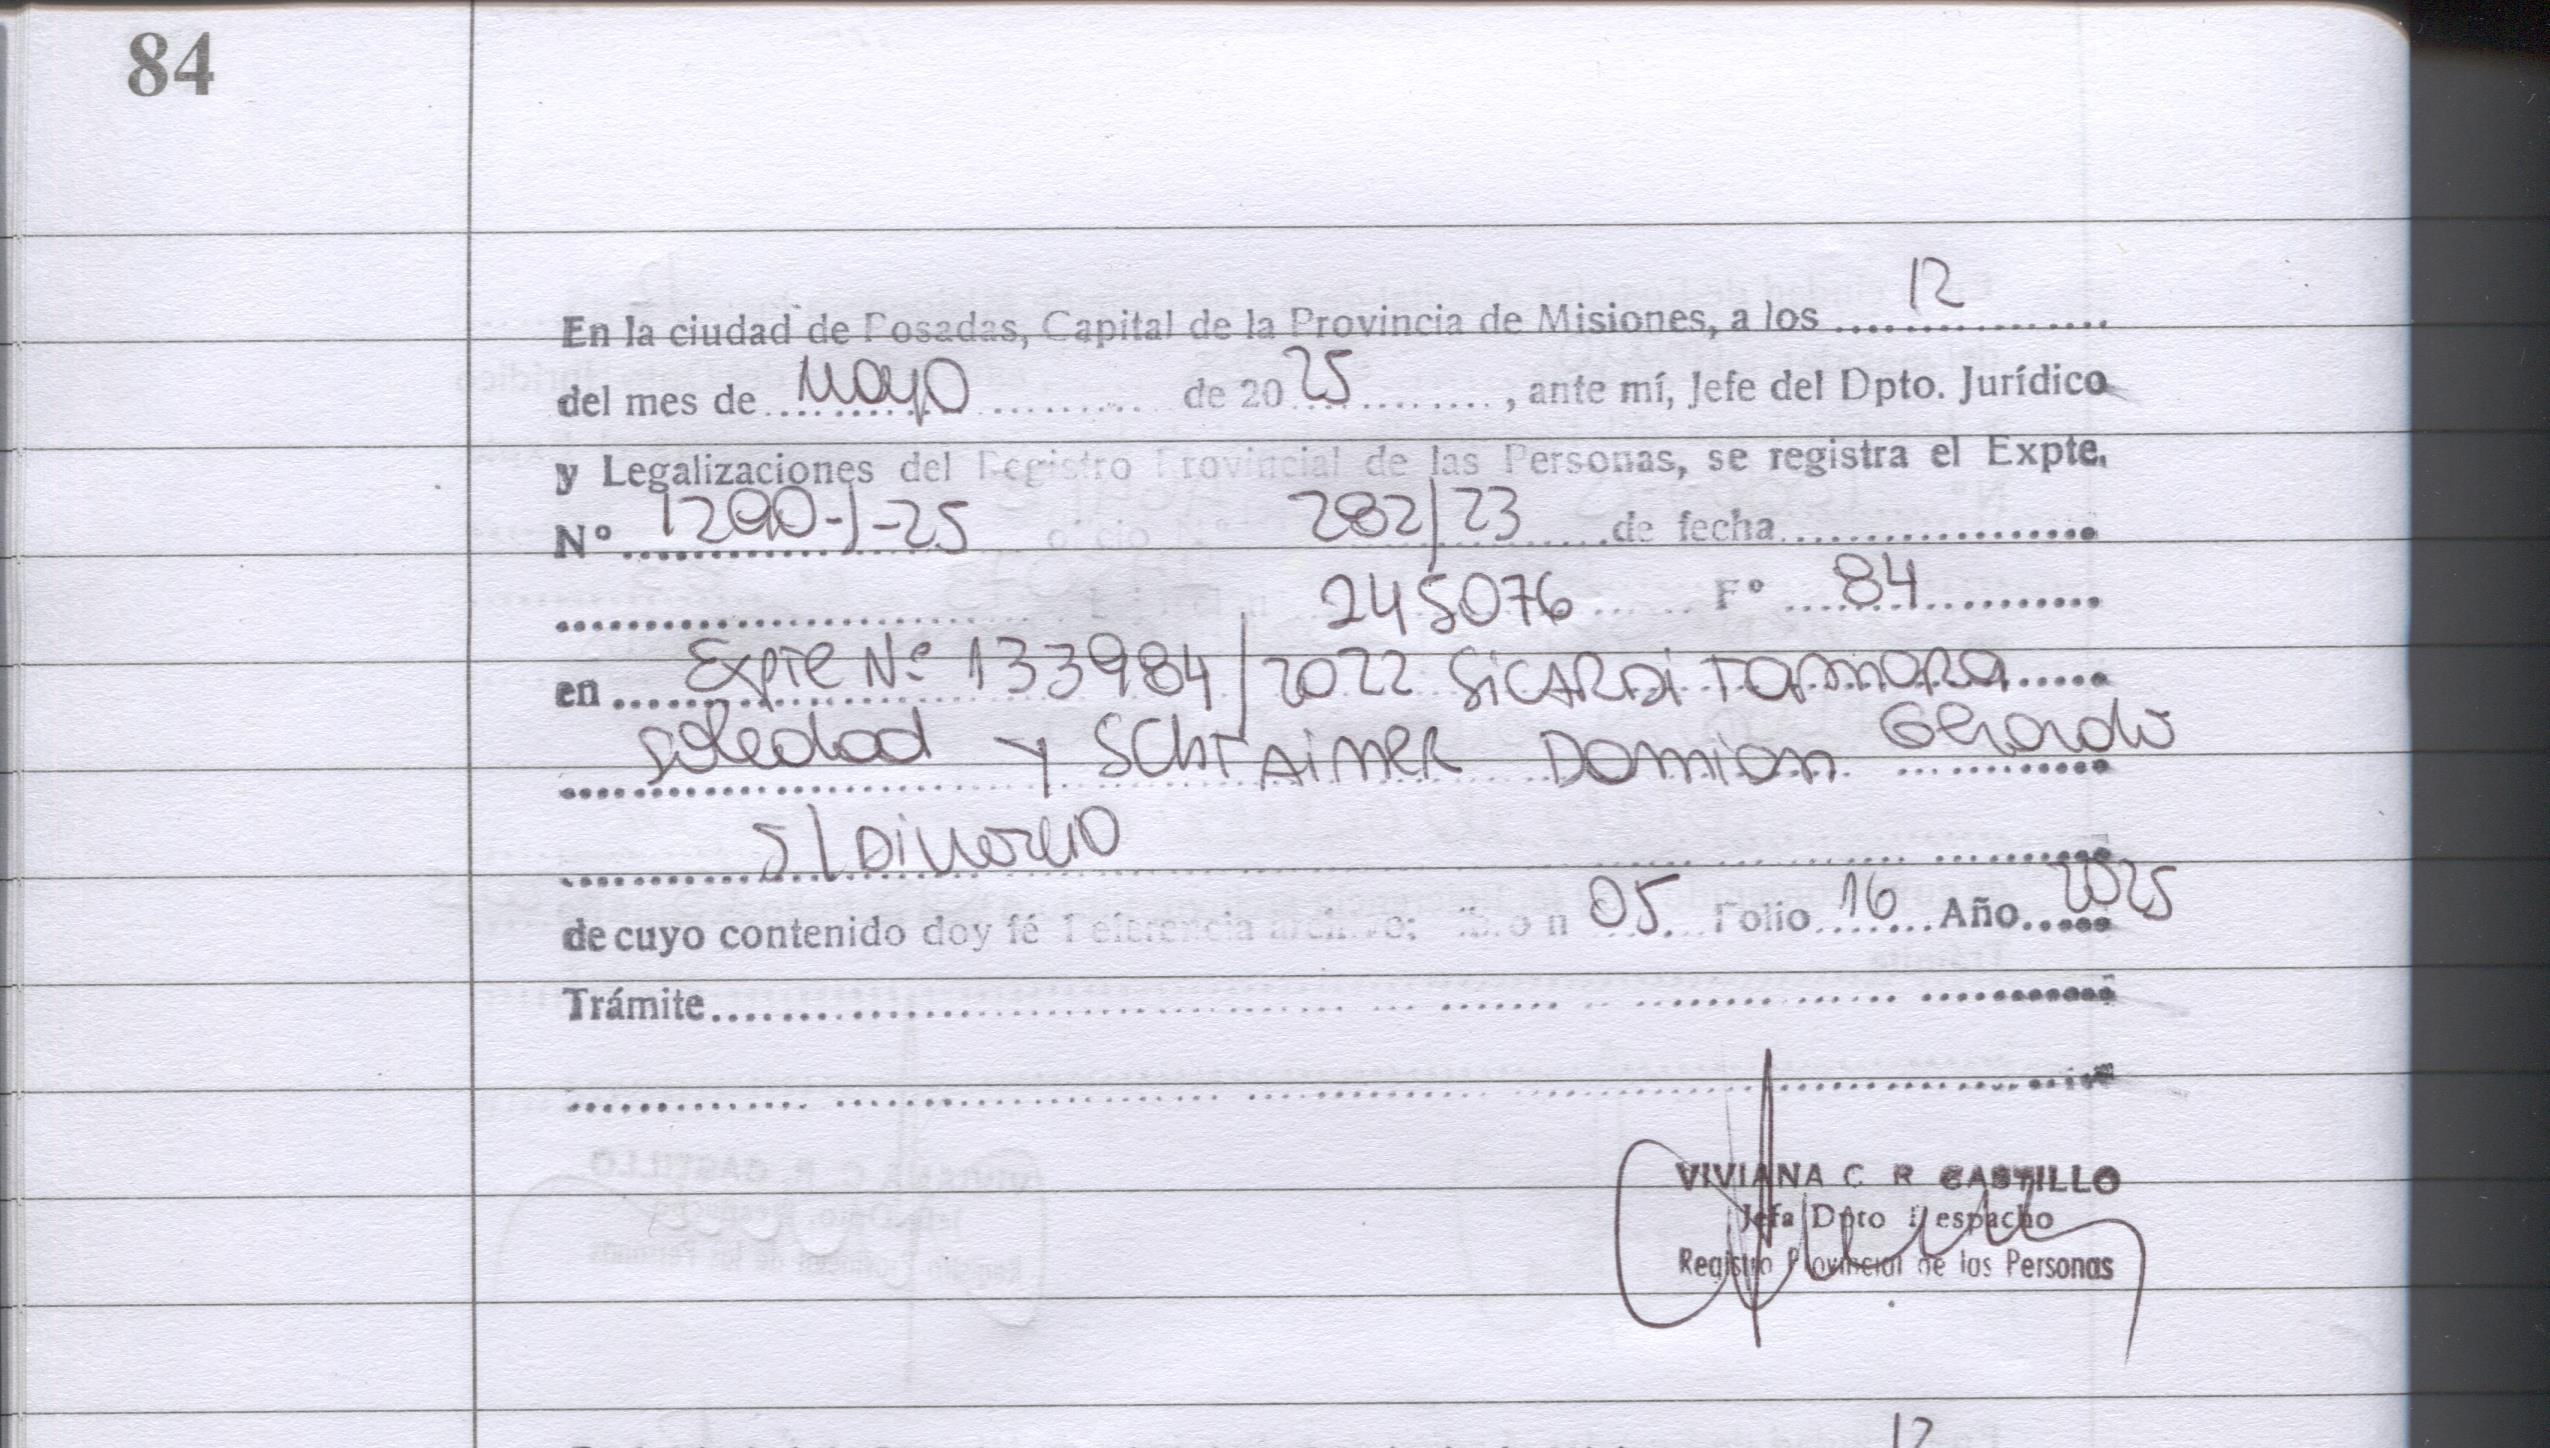 84
En la ciudad de Posadas, Capital de la Provincia de Misiones, a los 12
del mes de Mayo de 2025, ante mí, Jefe del Dpto. Jurídico
y Legalizaciones del Registro Provincial de las Personas, se registra el Expte.
Nº 1290-J-25 oficio Nº 282/23 de fecha
245076 Fº 84
en Expte Nº 133984/2022 SiCARDi TAMARA
Soledad y SCHTAiNER DAmian Gerardo
S/ Divorcio
de cuyo contenido doy fé Referencia archivo: 05 Folio 16 Año 2025
Trámite
VIVIANA C R CASTILLO
Jefa Dpto Despacho
Registro Provincial de las Personas
12